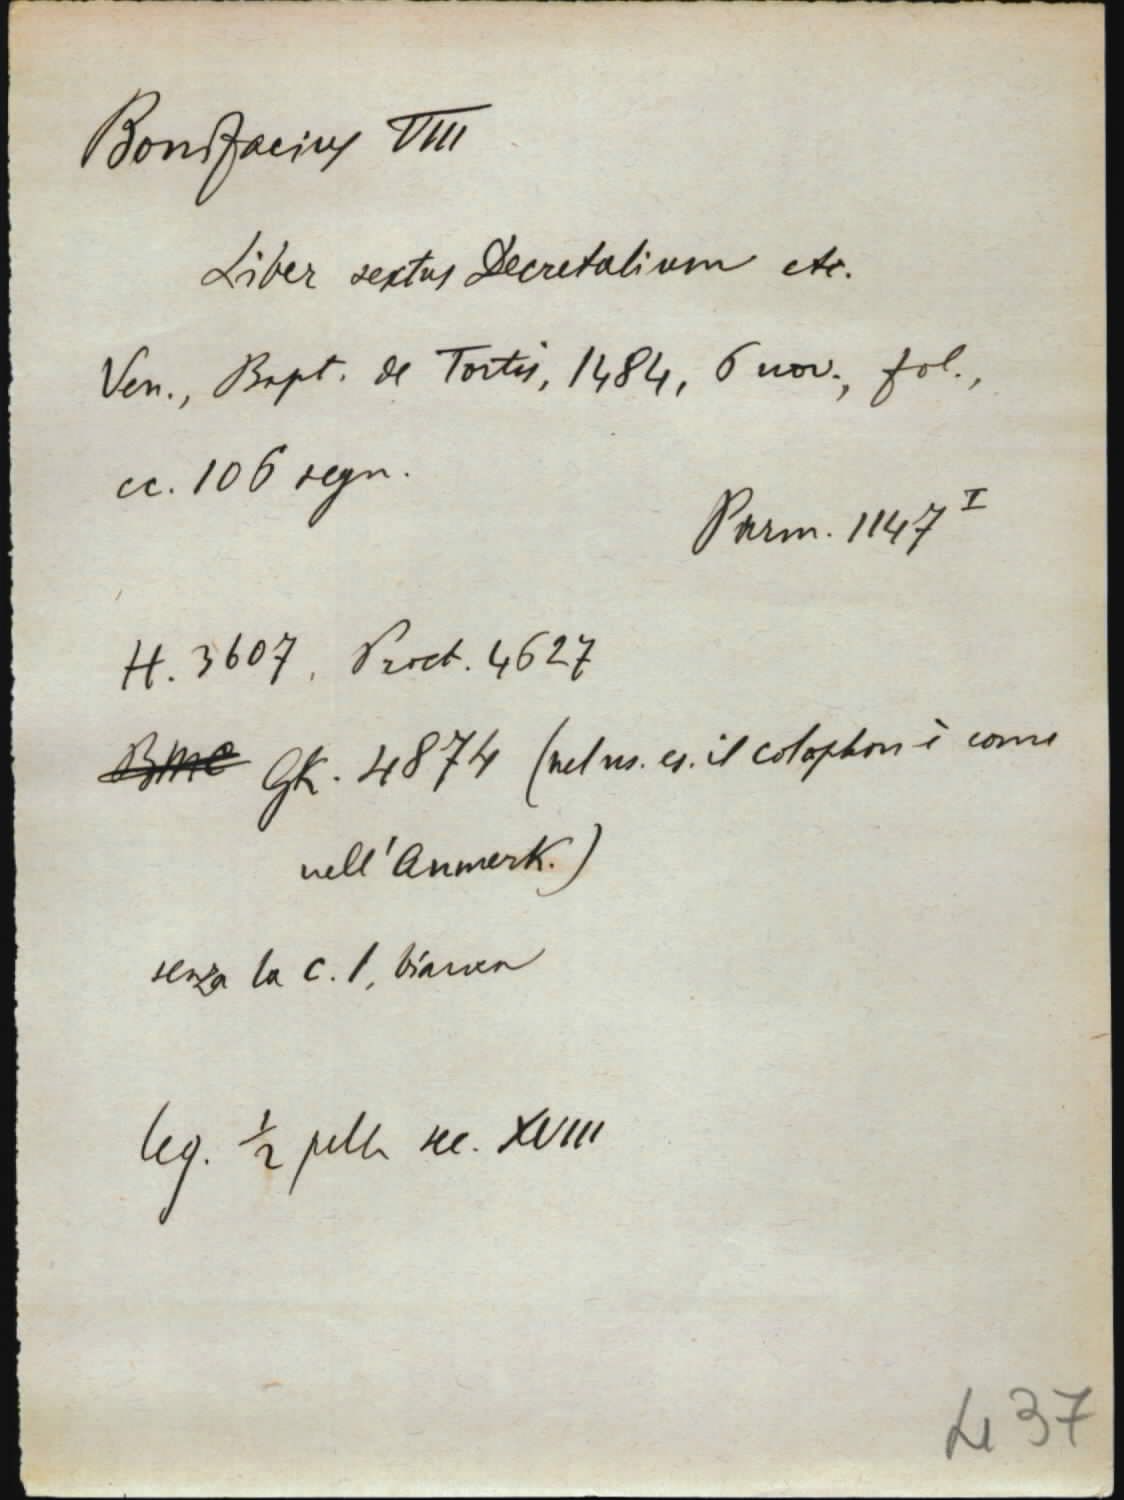 Bonifacius VIII
Liber sextus Decretalium etc.
Ven., Bapt. de Tortis, 1484, 6 nov., fol.,
cc. 106 segn.
Parm. 1147 I
H. 3607, Proct. 4627
BMC GK. 4874 (nel ns. es. il colophon è come
nell'Anmerk.)
senza la c. 1, bianca
leg. ½ pelle sec. XVIII
37